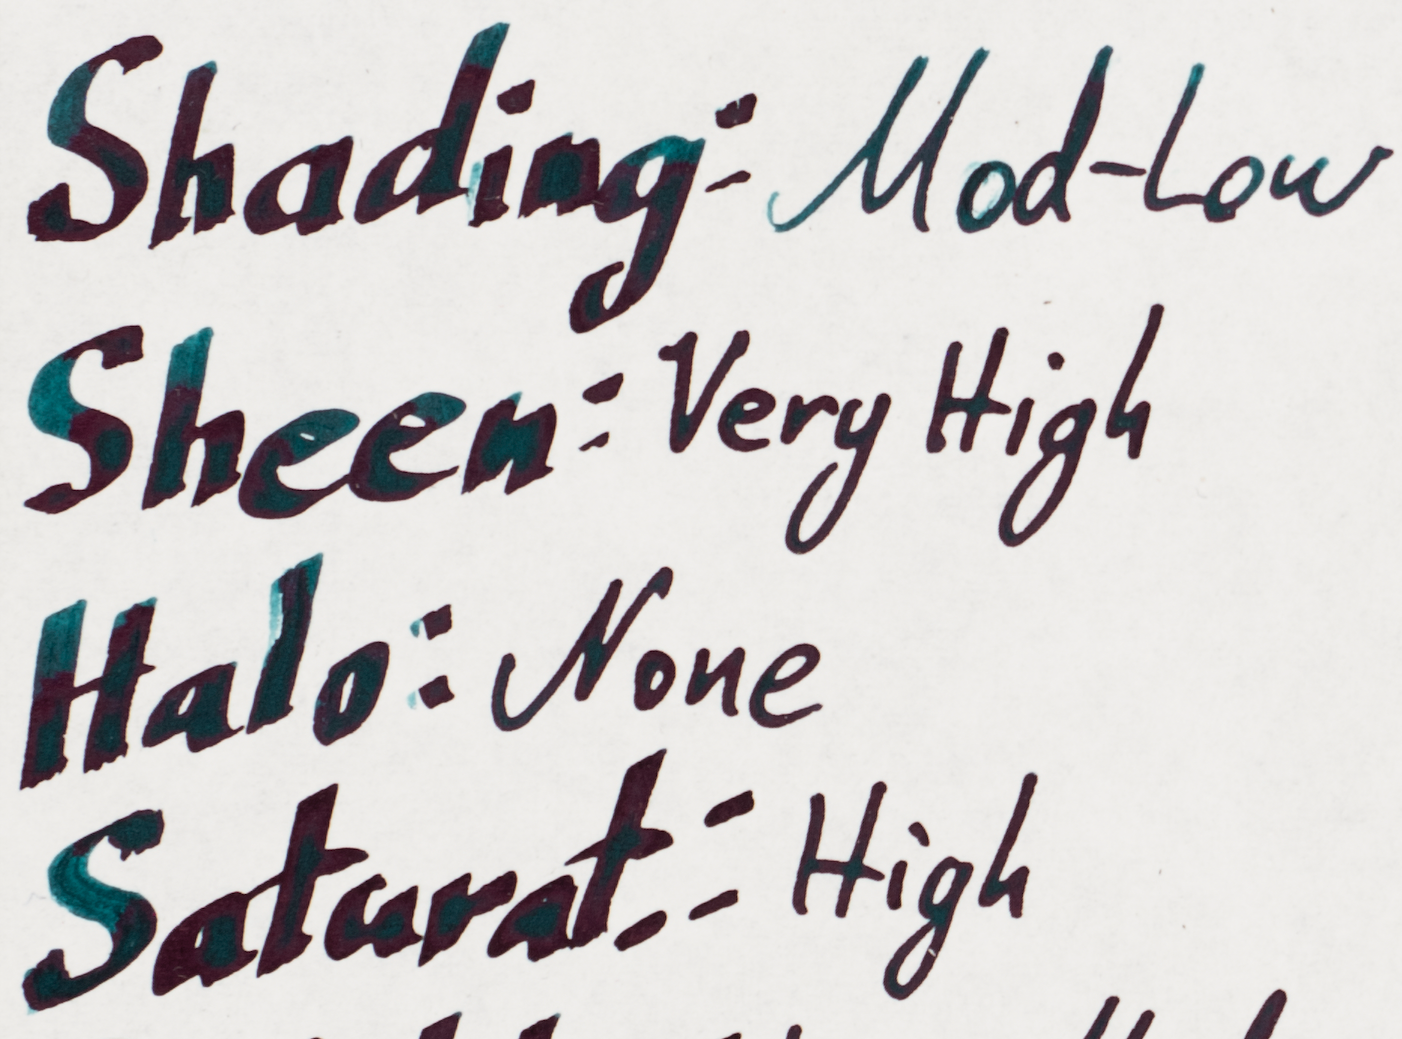 Shading: Mod-Low
Sheen: Very High
Halo: None
Saturat.: High